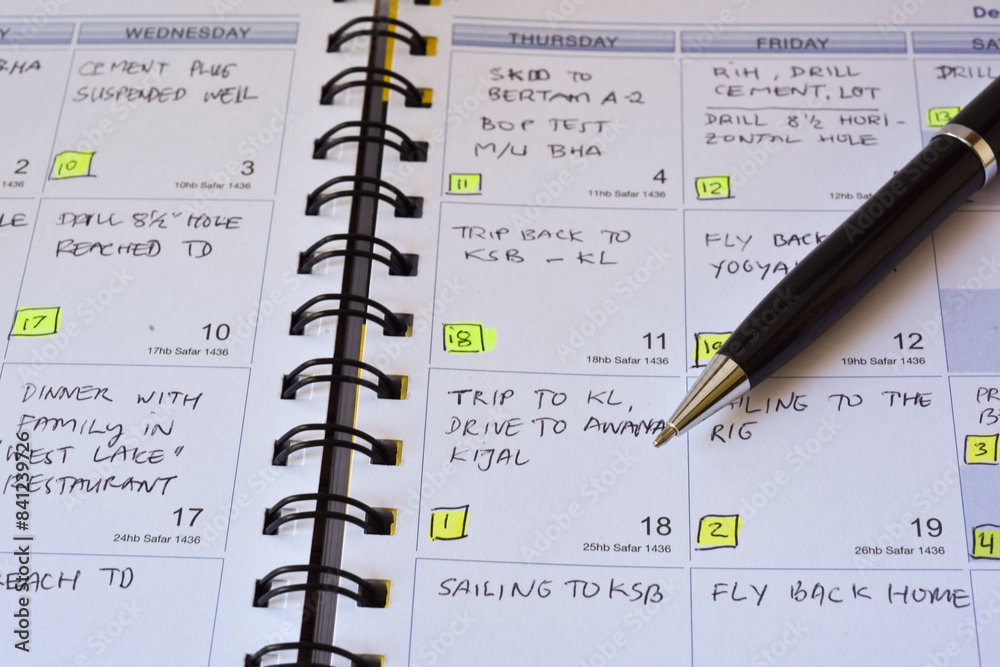 De
WEDNESDAY
THURSDAY
FRIDAY
SA
BHA
2
1436
CEMENT PLUG
SUSPENDED WELL
10
3
10hb Safar 1436
SKID TO
BERTAM A-2
BOP TEST
M/U BHA
11
4
11hb Safar 1436
RIH, DRILL
CEMENT, LOT
DRILL 8½ HORI-
ZONTAL HOLE
12
12hb Safar
DRILL
13
LE
9
1436
DRILL 8½" HOLE
REACHED TD
17
10
17hb Safar 1436
TRIP BACK TO
KSB - KL
18
11
18hb Safar 1436
FLY BACK
YOGYA
19
12
19hb Safar 1436
DINNER WITH
FAMILY IN
"WEST LAKE"
RESTAURANT
17
24hb Safar 1436
TRIP TO KL,
DRIVE TO AWANA
KIJAL
1
18
25hb Safar 1436
ILING TO THE
RIG
2
19
26hb Safar 1436
PR
B
3
4
REACH TD
SAILING TO KSB
FLY BACK HOME
Adobe Stock | #841239726
Adobe Stock